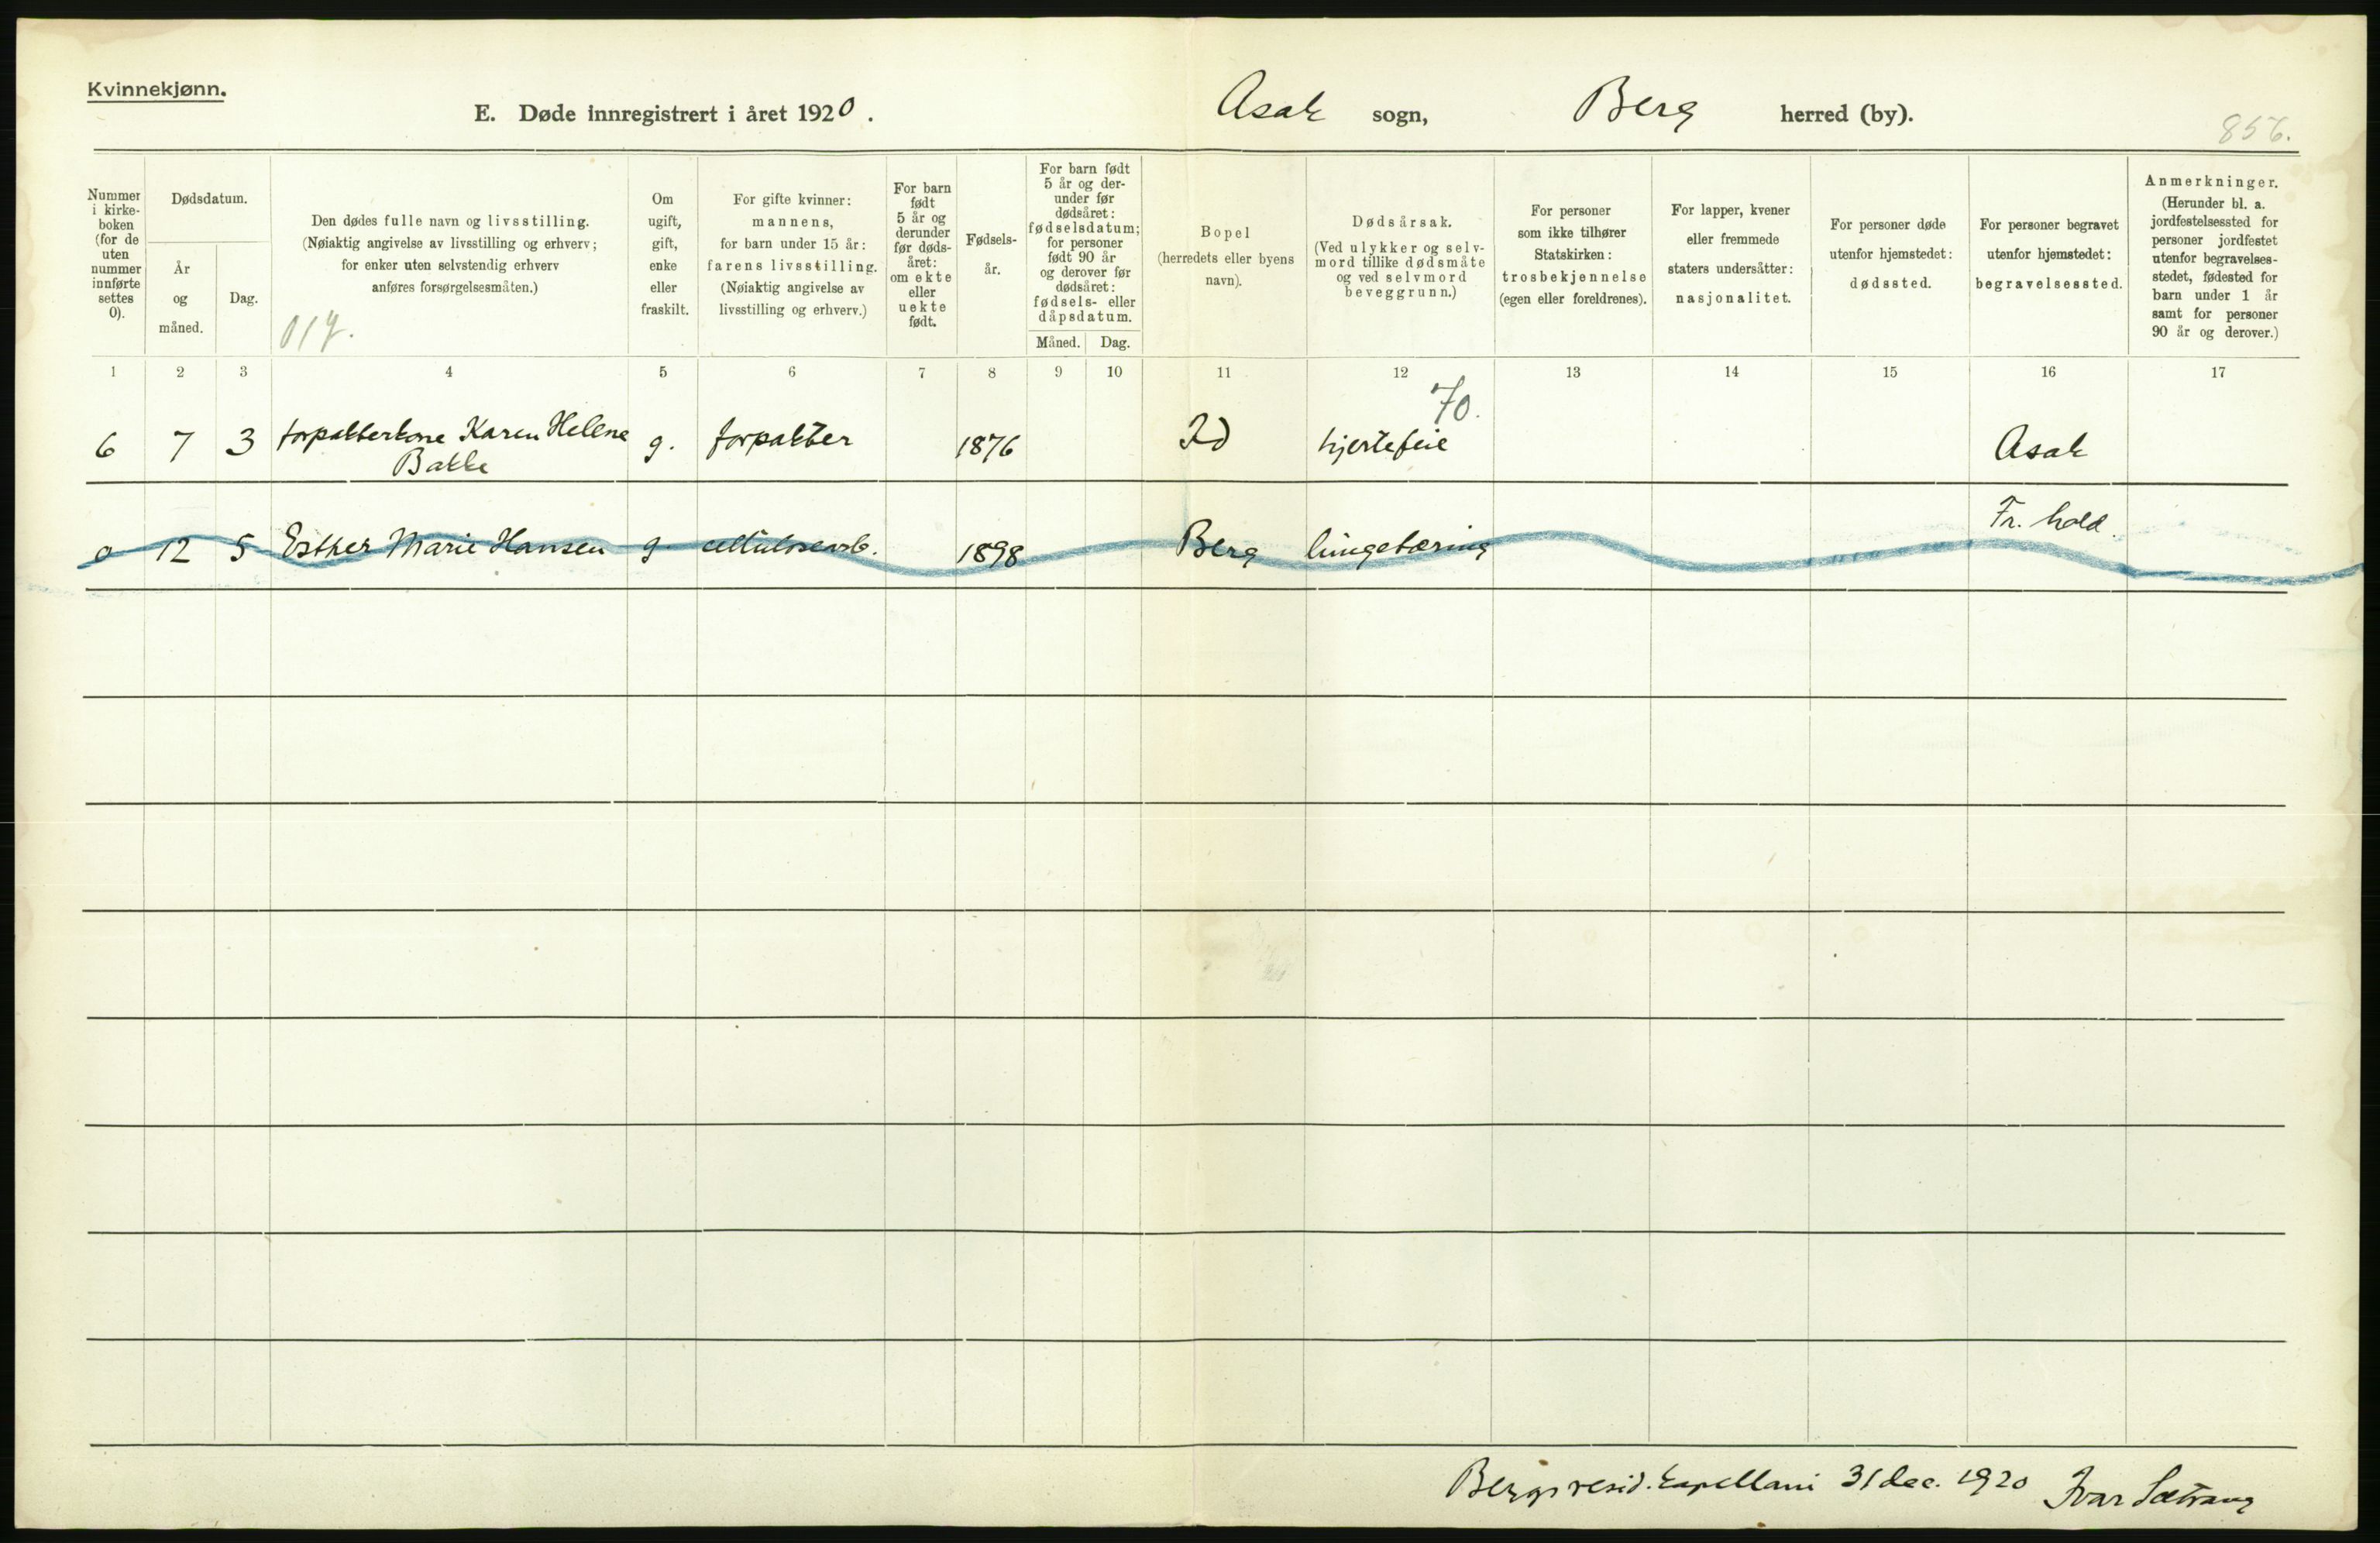 Kvinnekjønn.
E. Døde innregistrert i året 1920. Asak sogn, Berg herred (by).
856.
Nummer
i kirke-
boken
(for de
uten
nummer
innførte
settes
0).
Dødsdatum.
År
og
måned.
Dag.
Den dødes fulle navn og livsstilling.
(Nøiaktig angivelse av livsstilling og erhverv;
for enker uten selvstendig erhverv
anføres forsørgelsesmåten.)
017.
Om
ugift,
gift,
enke
eller
fraskilt.
For gifte kvinner:
mannens,
for barn under 15 år:
farens livsstilling.
(Nøiaktig angivelse av
livsstilling og erhverv.)
For barn
født
5 år og
derunder
før døds-
året:
om ekte
eller
uekte
født.
Fødsels-
år.
For barn født
5 år og der-
under før
dødsåret:
fødselsdatum;
for personer
født 90 år
og derover før
dødsåret:
fødsels- eller
dåpsdatum.
Måned. Dag.
Bopel
(herredets eller byens
navn).
Dødsårsak.
(Ved ulykker og selv-
mord tillike dødsmåte
og ved selvmord
beveggrunn.)
For personer
som ikke tilhører
Statskirken:
trosbekjennelse
(egen eller foreldrenes).
For lapper, kvener
eller fremmede
staters undersåtter:
nasjonalitet.
For personer døde
utenfor hjemstedet:
dødssted.
For personer begravet
utenfor hjemstedet:
begravelsessted.
Anmerkninger.
(Herunder bl. a.
jordfestelsessted for
personer jordfestet
utenfor begravelses-
stedet, fødested for
barn under 1 år
samt for personer
90 år og derover.)
1 2 3 4 5 6 7 8 9 10 11 12 13 14 15 16 17
70.
6 7 3 forpakterkone Karen Helene g. forpakter 1876 Id hjertefeil Asak
Bakke
Fr. hald.
0 12 5 Esther Marie Hansen g. cellulosearb. 1898 Berg lungetæring
Bergs resid. kapellani 31 dec. 1920 Ivar Sætrang